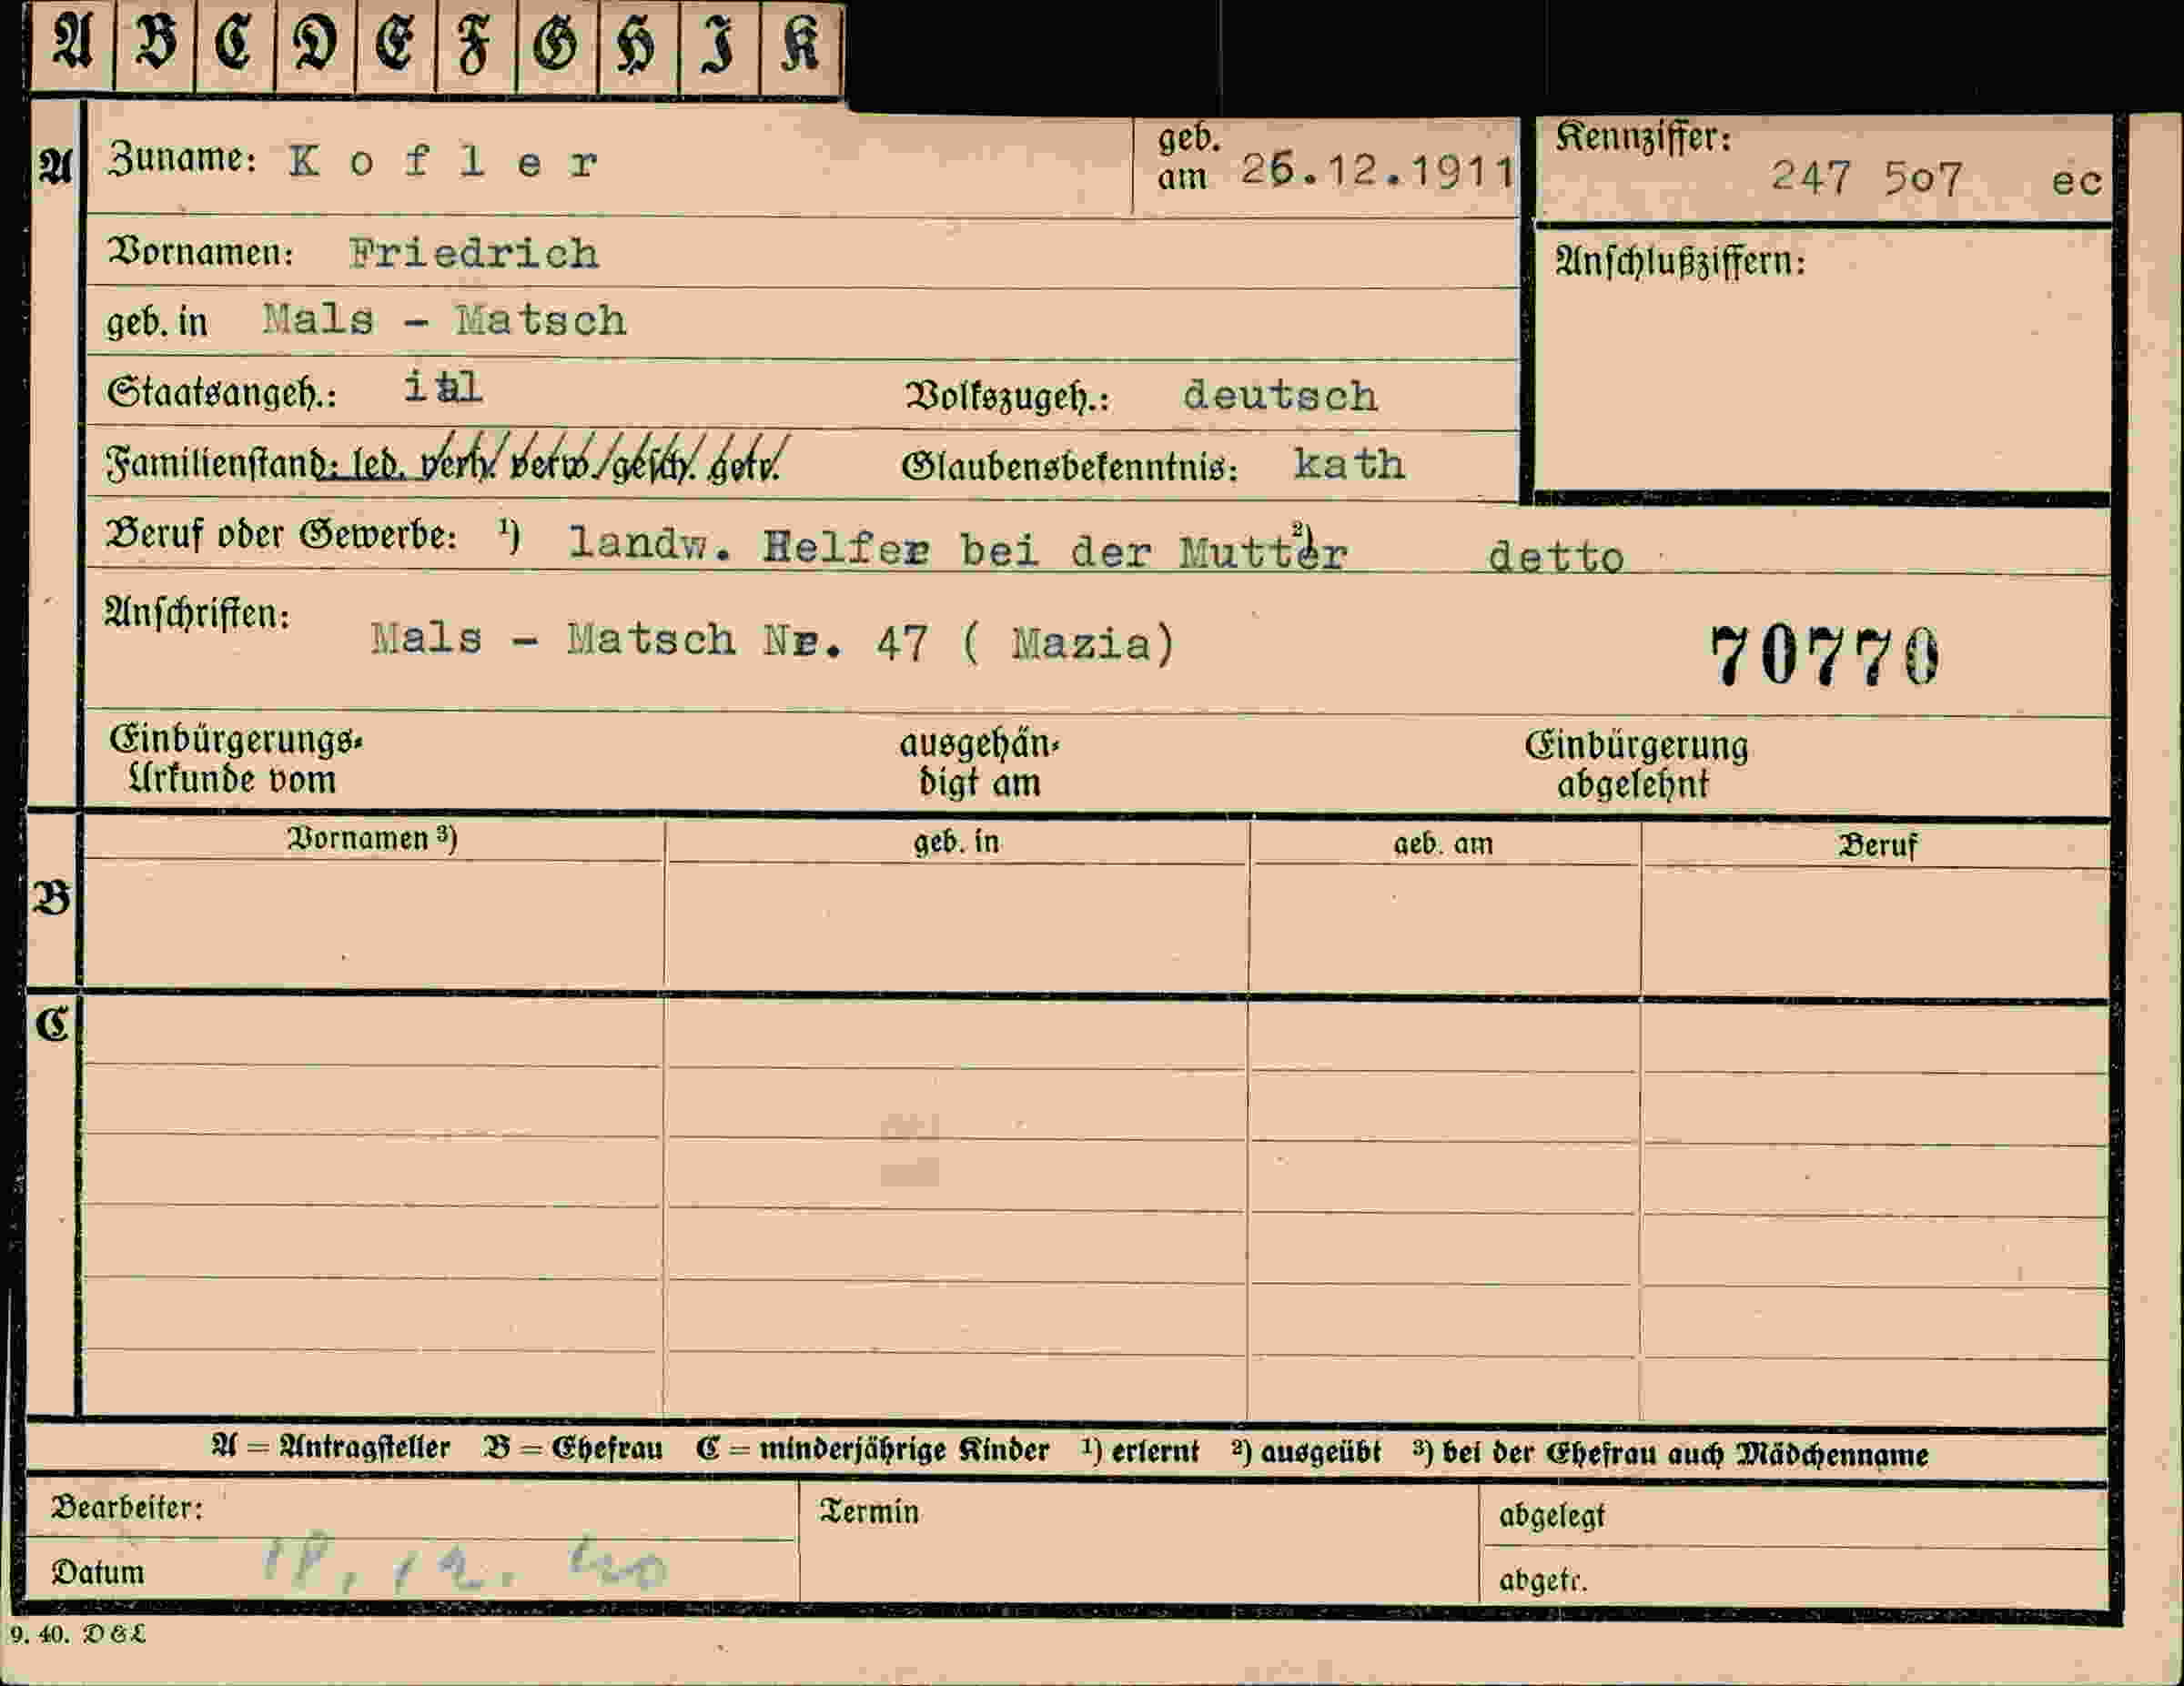 A B C D E F G H I K
A Zuname: Kofler geb. am 26.12.1911 Kennziffer: 247 5o7 ec
Vornamen: Friedrich
Anschlußziffern:
geb. in Mals - Matsch
Staatsangeh.: ital Volkszugeh.: deutsch
Familienstand: led. verh. verw. gesch. getr. Glaubensbekenntnis: kath
Beruf oder Gewerbe: 1) landw. Helfer bei der Mutter 2) detto
Anschriften: Mals - Matsch Nr. 47 ( Mazia)
70770
Einbürgerungs- ausgehän- Einbürgerung
Urkunde vom digt am abgelehnt
Vornamen 3) geb. in geb. am Beruf
B
C
A = Antragsteller B = Ehefrau C = minderjährige Kinder 1) erlernt 2) ausgeübt 3) bei der Ehefrau auch Mädchenname
Bearbeiter: Termin abgelegt
Datum 18. 12. 40 abgetr.
9. 40. D & L